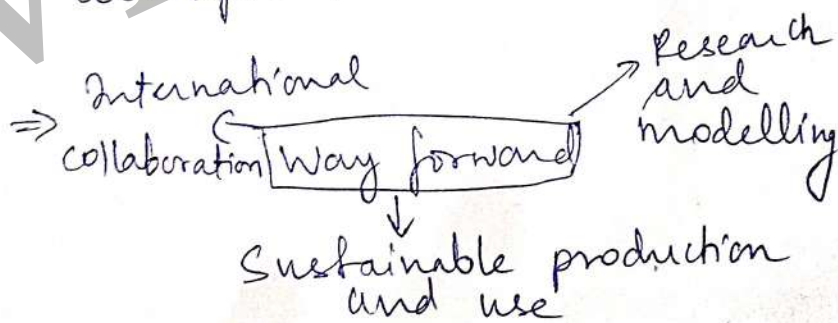 ⇒ International
collaboration
Way forward
Research
and
modelling
Sustainable production
and use